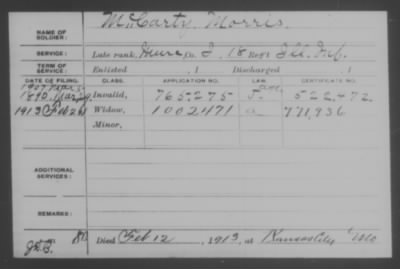 McCarty, Morris.
NAME OF SOLDIER:
SERVICE: Late rank, Co. I, 18 Reg't Ill. Inf.
TERM OF SERVICE: Enlisted , 1 Discharged , 1
DATE OF FILING. CLASS. APPLICATION NO. LAW. CERTIFICATE NO.
1907
Invalid, 765,275 522,472
1913 Feb 26 Widow, 1002471 a 771,936
Minor,
ADDITIONAL SERVICES:
REMARKS:
Died Feb 12, 1913, at Kansas City Mo